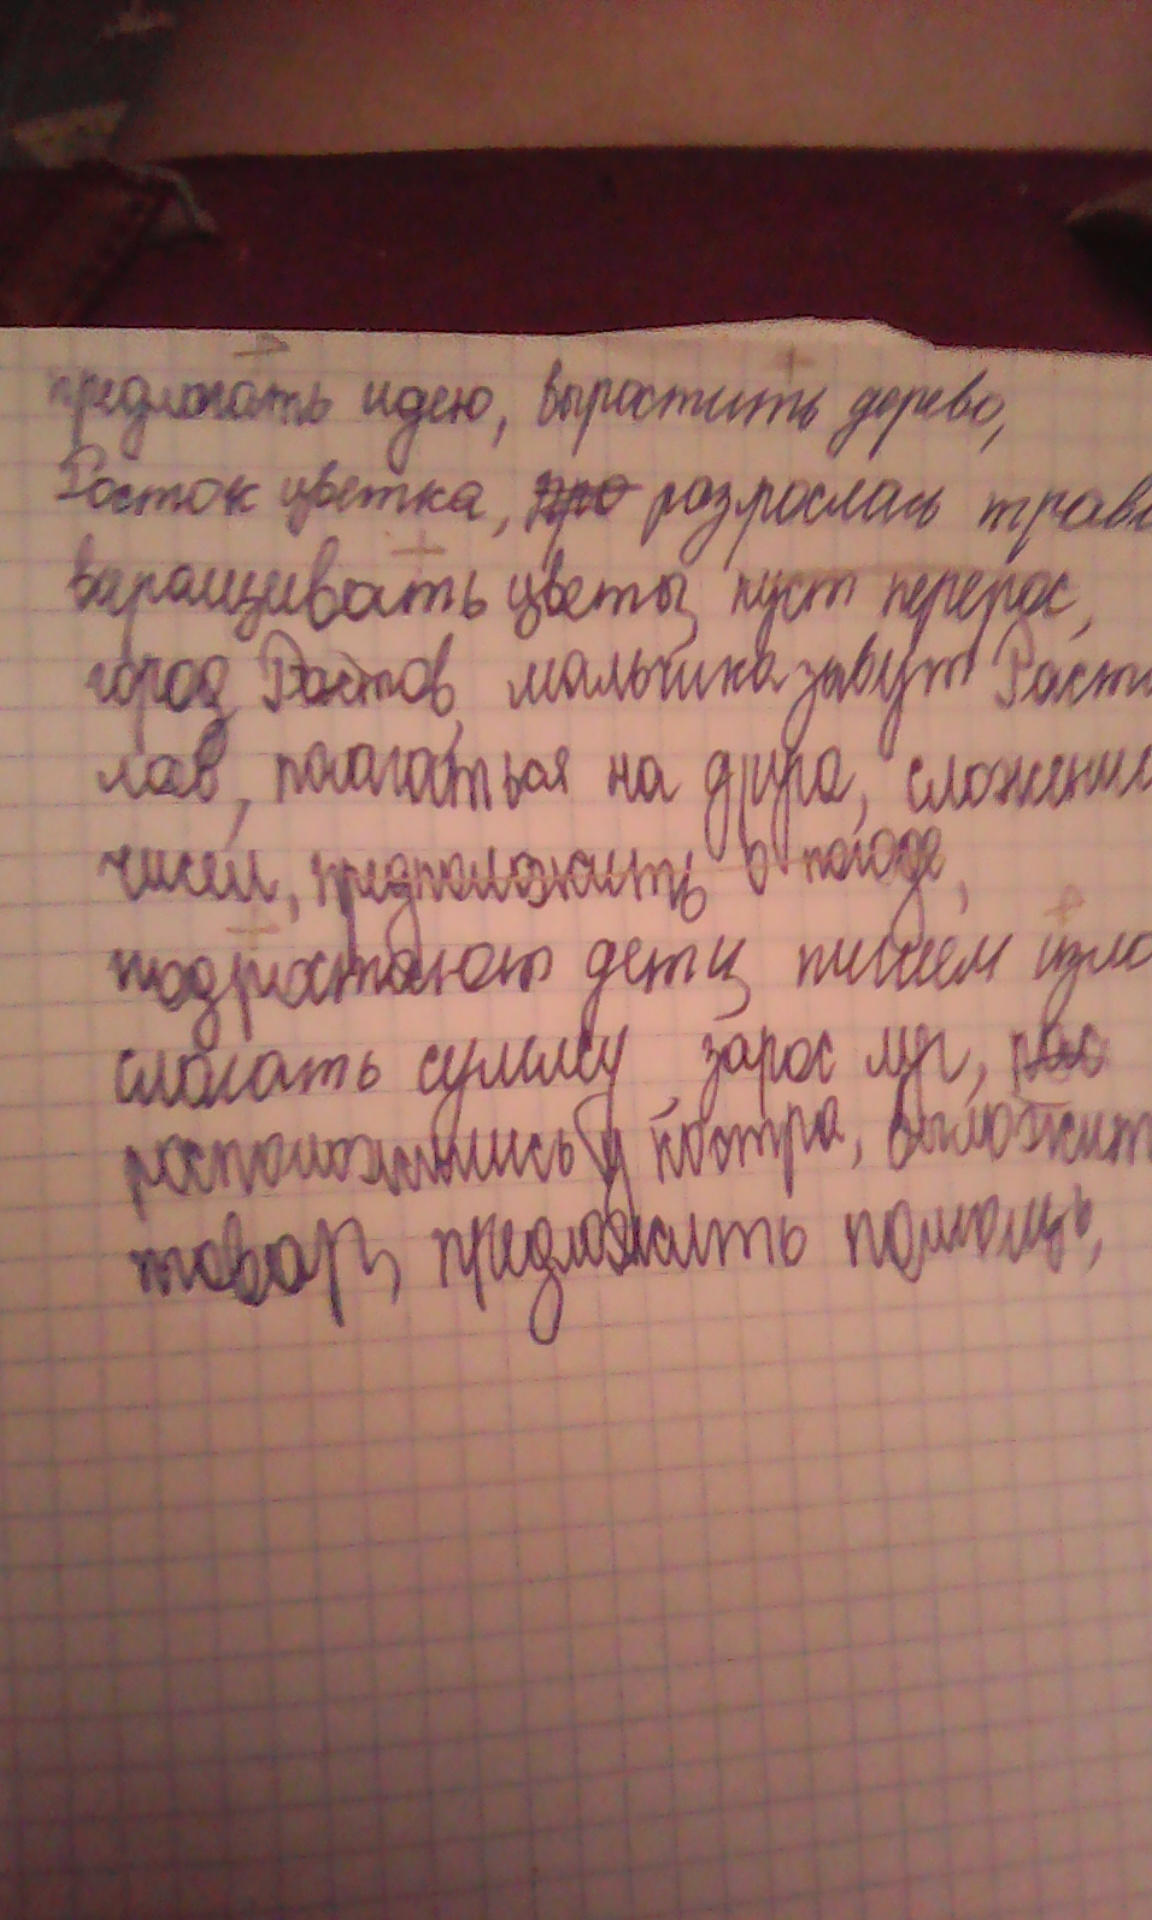 предлогать идею, выростить дерево,
Росток цветка, про розрослась трава
выращивать цветы, куст перерос,
город Ростов, мальчика зовут Рости
лав, полагаться на друга, сложение
чисел, предположить о погоде,
подростают дети, пишем изло
слогать сумму, зарос луг, рас
росположились у костра, выложит
товар, предложить помощь,